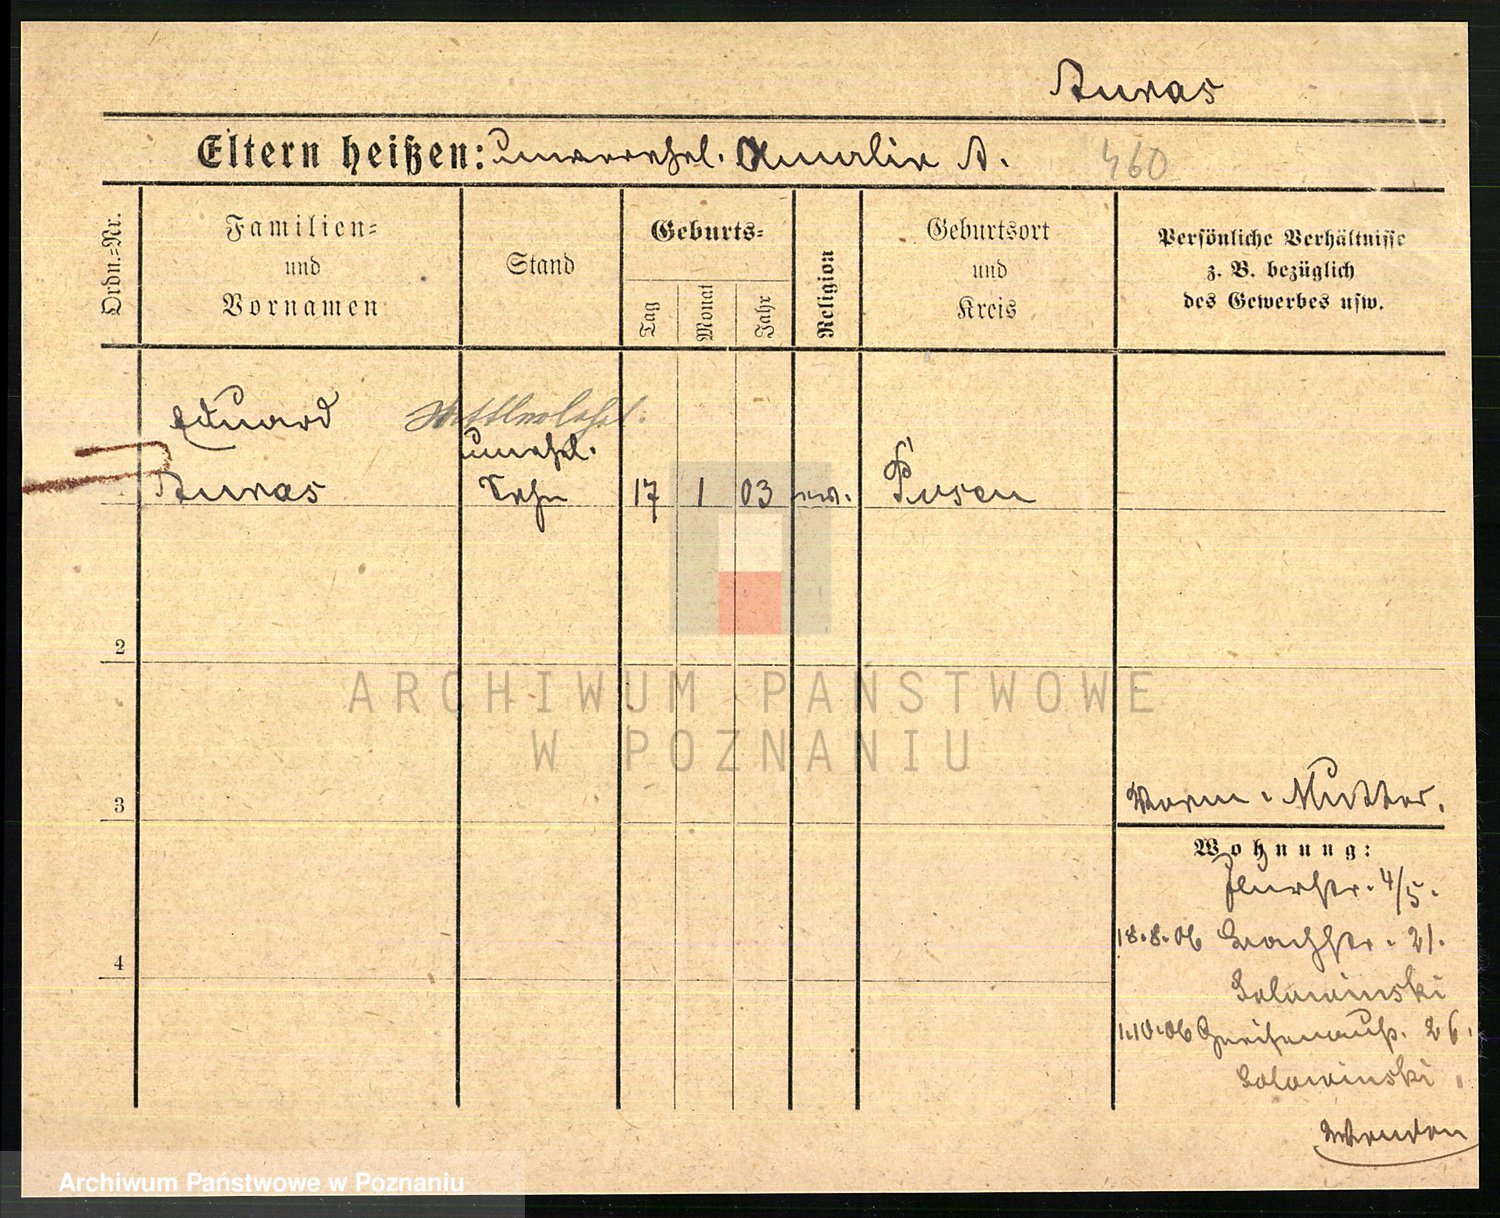 Auras
Eltern heißen: unverehel. Amalie A. 460
Ordn.-Nr.
Familien-
und
Vornamen
Stand
Geburts-
Tag
Monat
Jahr
Religion
Geburtsort
und
Kreis
Persönliche Verhältnisse
z. B. bezüglich
des Gewerbes usw.
Eduard
unehel.
1 Auras Sohn 17 1 03 ev. Posen
2
ARCHIWUM PAŃSTWOWE
W POZNANIU
3
Mutter.
Wohnung:
Flurstr. 4/5.
18.8.06 Bachstr. 21.
1.10.06 26.
Wenden
4
Archiwum Państwowe w Poznaniu